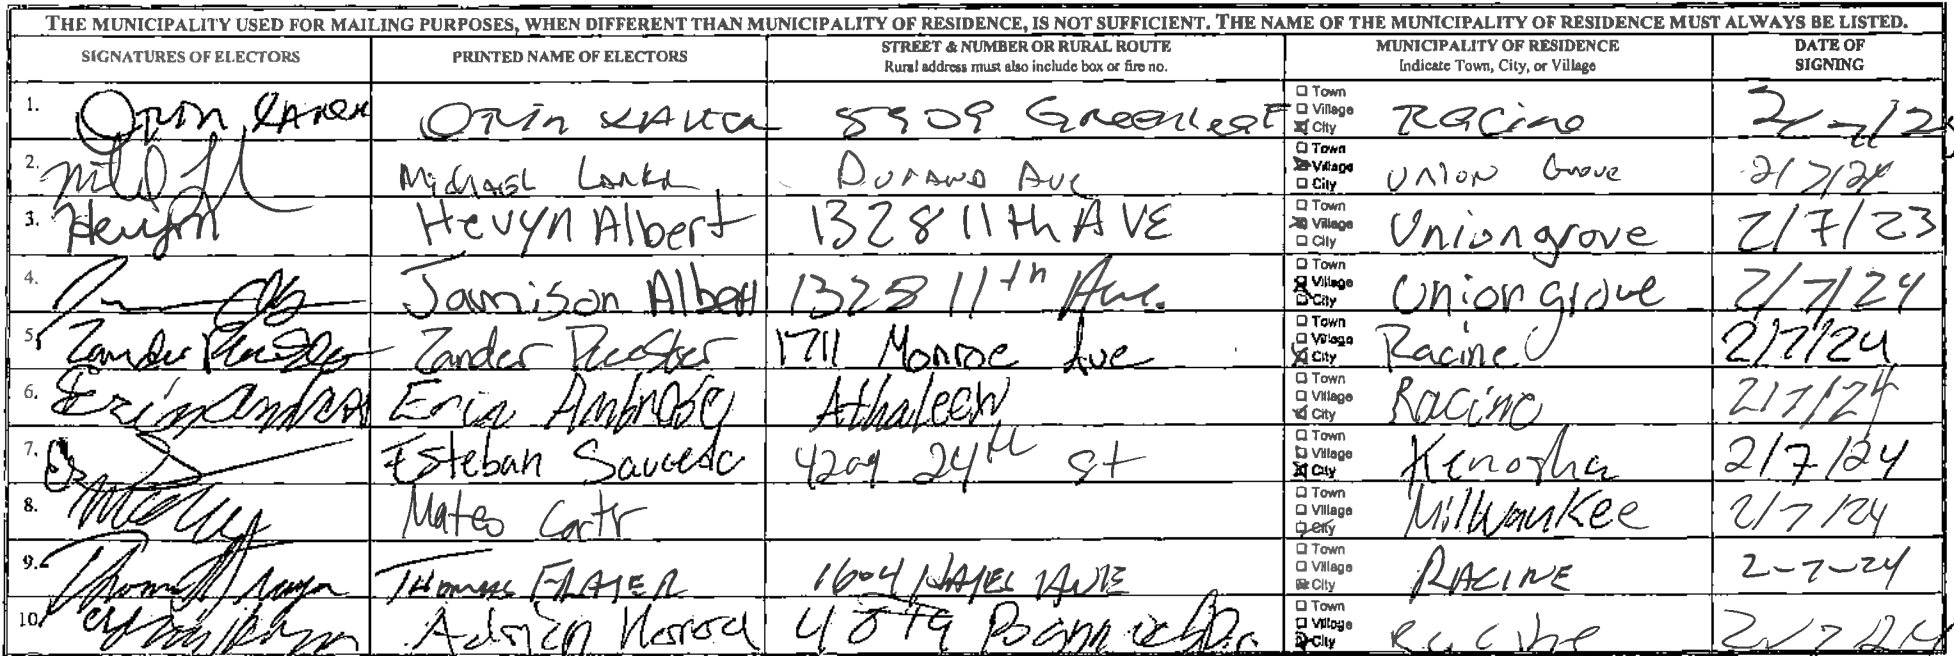 THE MUNICIPALITY USED FOR MAILING PURPOSES, WHEN DIFFERENT THAN MUNICIPALITY OF RESIDENCE, IS NOT SUFFICIENT. THE NAME OF THE MUNICIPALITY OF RESIDENCE MUST ALWAYS BE LISTED.
SIGNATURES OF ELECTORS PRINTED NAME OF ELECTORS STREET & NUMBER OR RURAL ROUTE MUNICIPALITY OF RESIDENCE DATE OF SIGNING
Rural address must also include box or fire no. Indicate Town, City, or Village
1. Orin Orin 5909 Greenleaf Town Village City Racine
2. Michael Durand Ave Town Village City Union Grove 2/7/24
3. Hevyn Albert 1328 11th AVE Town Village City Uniongrove 2/7/23
4. Jamison Albert 1328 11th Ave. Town Village City Union grove 2/7/24
5. Zander Zander 1711 Monroe Ave Town Village City Racine 2/7/24
6. Erin Erin Ambrose Town Village City Racine 2/7/24
7. Esteban Saucedo 4209 24th St Town Village City Kenosha 2/7/24
8. Mateo Town Village City Milwaukee 2/7/24
9. Thomas Thomas 1604 Town Village City RACINE 2-7-24
10. Town Village City Racine 2/7/24